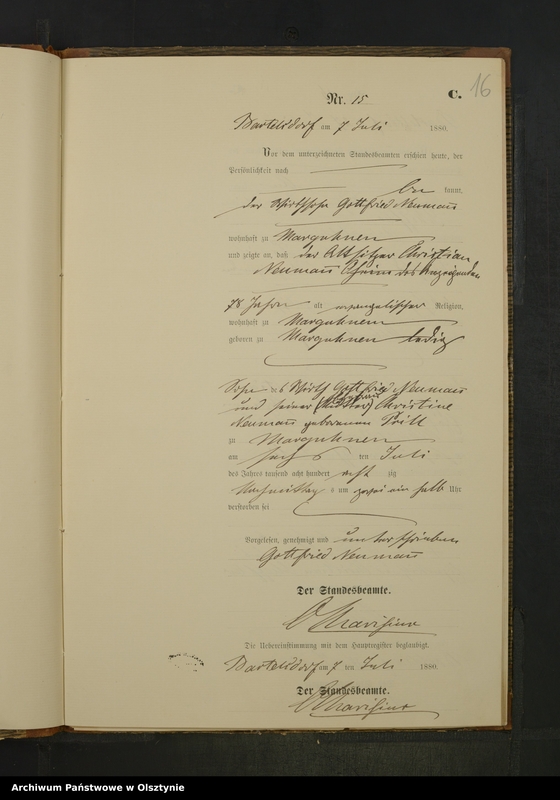 16
Nr. 15
C.
Bartelsdorf am 7 Juli 1880.
Vor dem unterzeichneten Standesbeamten erschien heute, der
Persönlichkeit nach
be kannt,
der Wirthssohn Gottfried Neumann
wohnhaft zu Marguhnen
und zeigte an, daß der Altsitzer Christian
Neumann Oheim des Anzeigenden
78 Jahre alt evangelischer Religion,
wohnhaft zu Marguhnen
geboren zu Marguhnen ledig
Sohn des Wirth Gottfried Neumann
und seiner Christine
Neumann geborenen Prill
zu Marguhnen
am sechs ten Juli
des Jahres tausend acht hundert acht zig
Nachmittags um zwei ein halb Uhr
verstorben sei
Vorgelesen, genehmigt und unterschrieben
Gottfried Neumann
Der Standesbeamte.
Die Uebereinstimmung mit dem Hauptregister beglaubigt.
Bartelsdorf am 7 ten Juli 1880.
Der Standesbeamte.
Archiwum Państwowe w Olsztynie